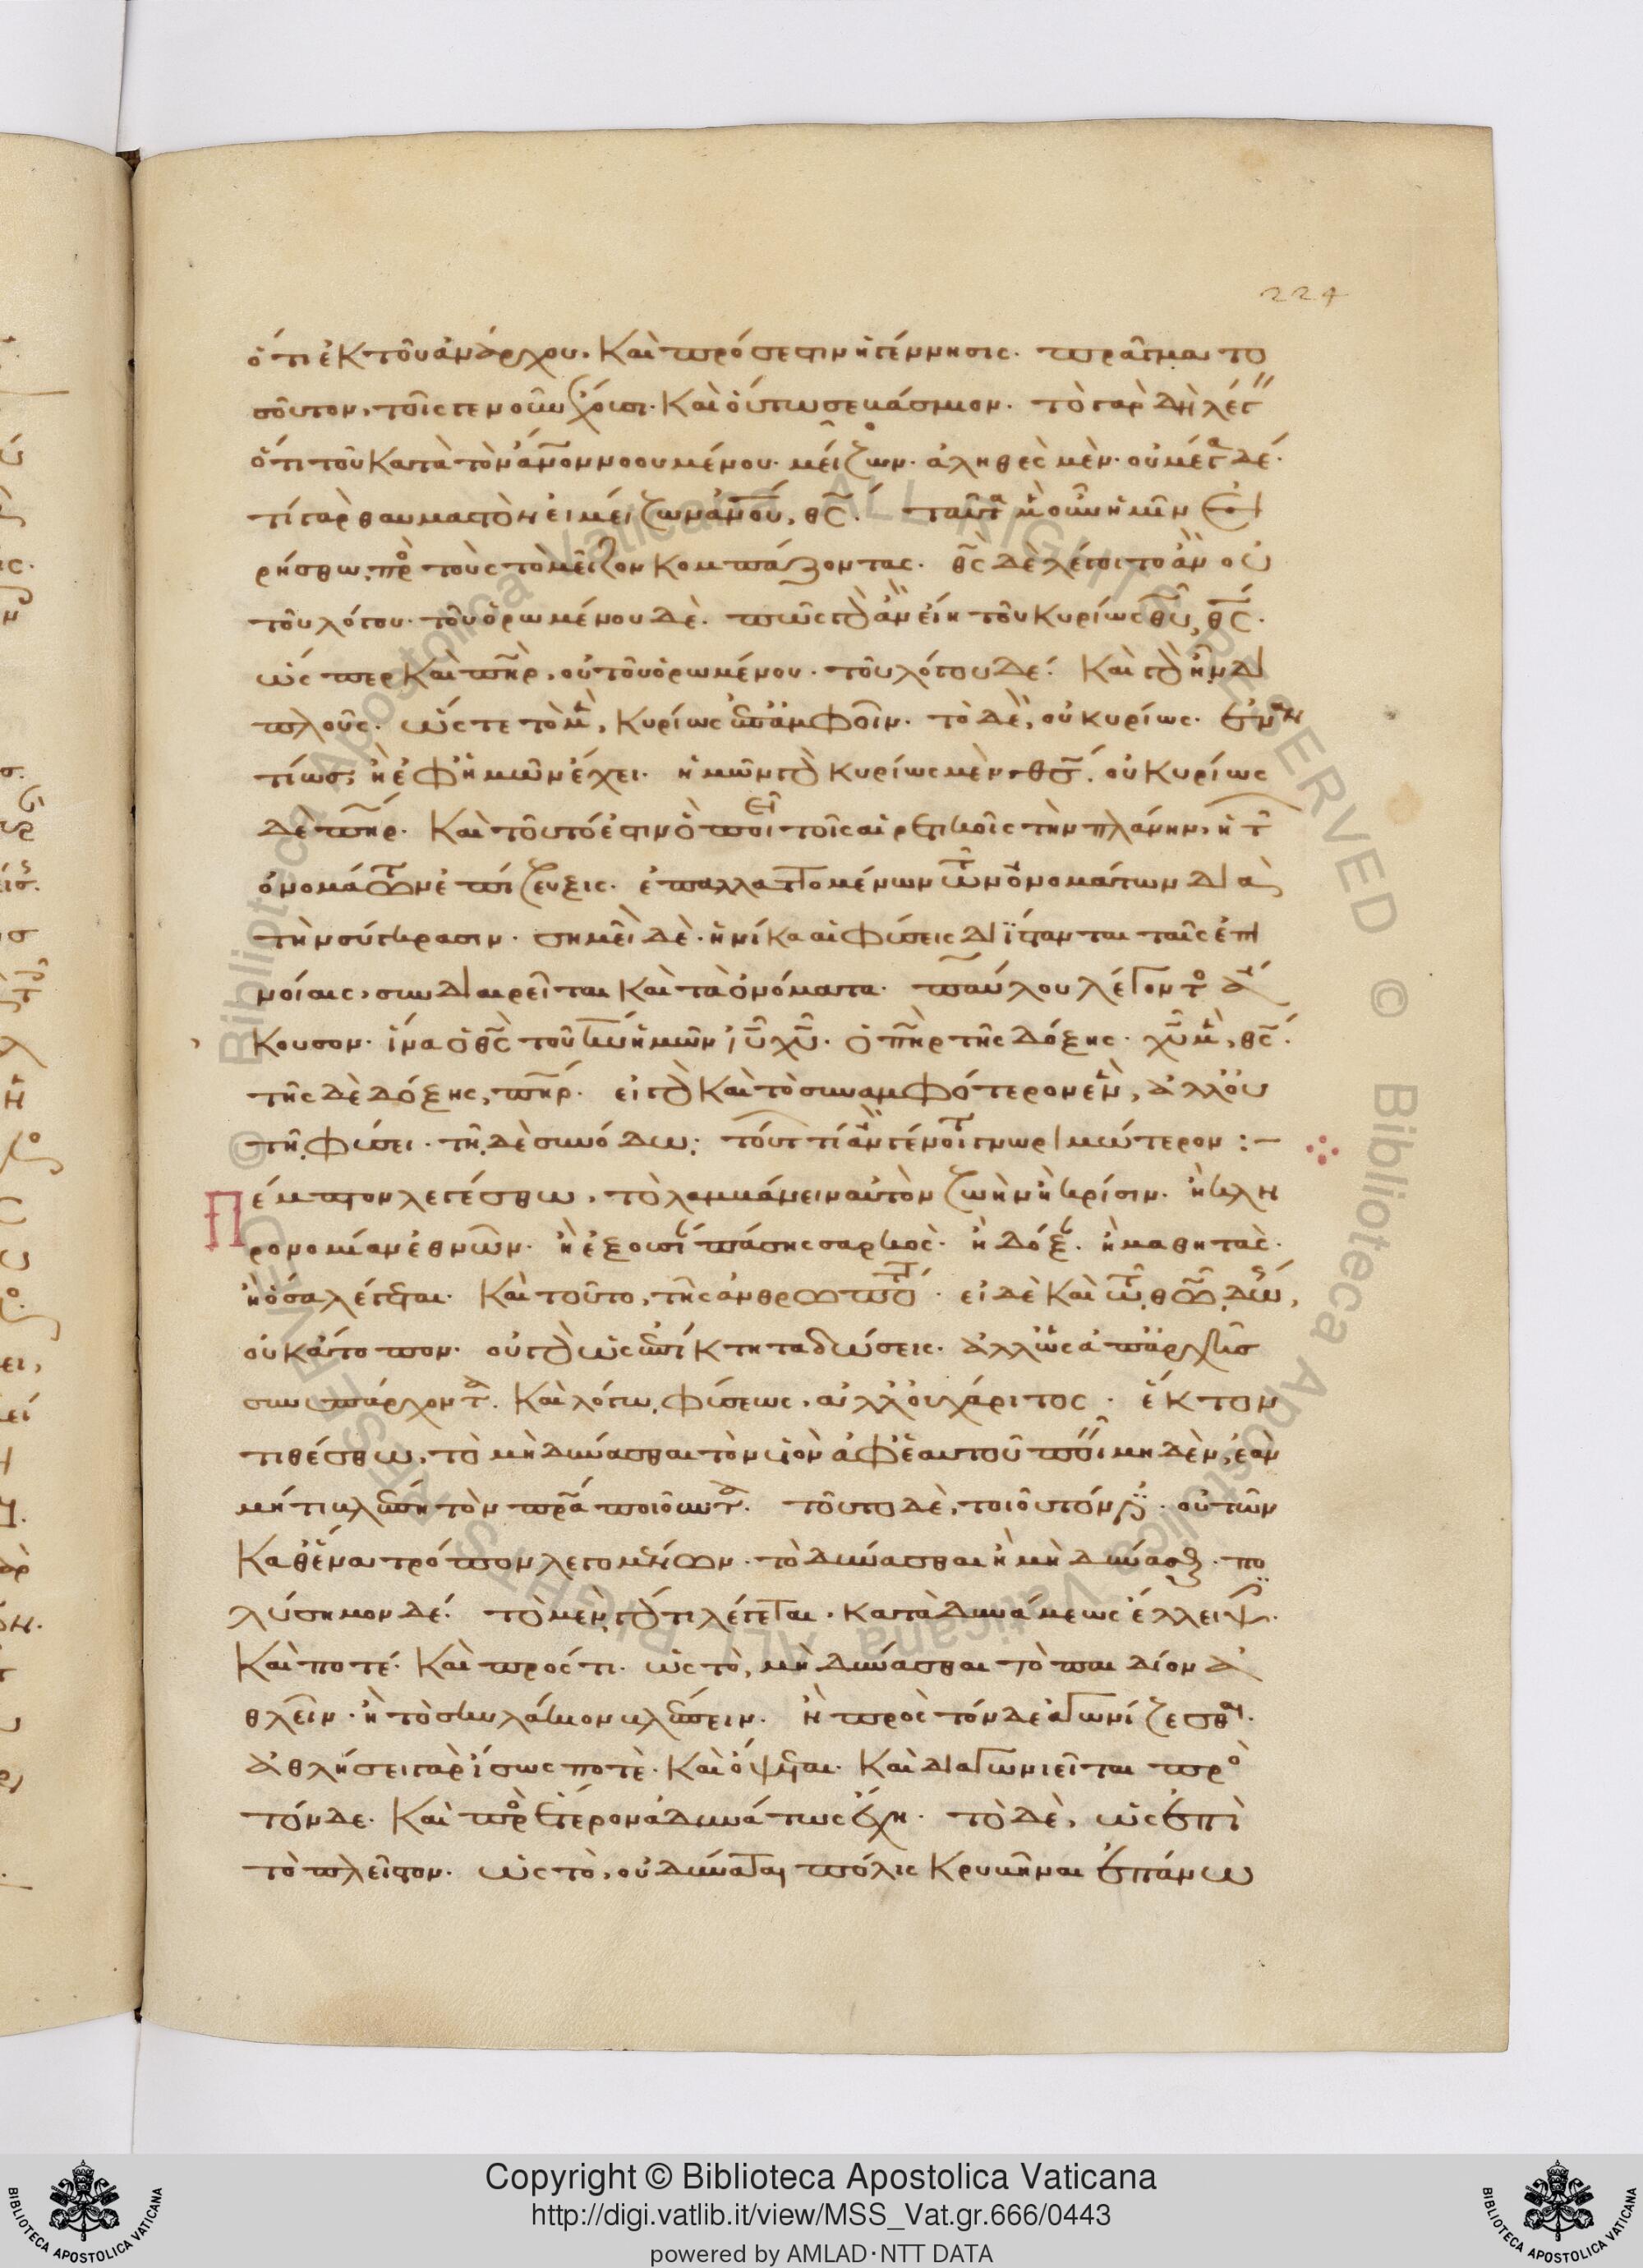 ὅτι ἐκ τοῦ ἀνάρχου. καὶ πρόσεστιν ἡ γέννησις. πρᾶγμα το
σοῦτον, τοῖς γε νοῦν ἔχουσι. καὶ οὕτω σεβάσμιον. τὸ γὰρ δὴ λέγ
ὅτι τοῦ κατὰ τὸν ἄνον νοουμένου μείζων. ἀληθὲς μὲν. οὐ μέγα δέ.
τί γὰρ θαυμαστὸν εἰ μείζων ἀνου, θς. ταῦτα μὲν οὖν ἡμῖν εἰ
ρήσθω, πρὸς τοὺς τὸ μεῖζον κομπάζοντας. θς δὲ λέγοιτο ἂν οὐ
τοῦ λόγου. τοῦ ὁρωμένου δὲ. πῶς γὰρ ἂν εἴη τοῦ κυρίως θυ, θς.
ὥσπερ καὶ πηρ, οὐ τοῦ ὁρωμένου. τοῦ λόγου δέ. καὶ γὰρ ἦν δι
πλοῦς. ὥστε τὸ μὲν, κυρίως ἐπ' ἀμφοῖν. τὸ δὲ, οὐ κυρίως. ἐναν
τίως, ἢ ἐφ' ἡμῶν ἔχει. ἡμῶν γὰρ κυρίως μὲν θς. οὐ κυρίως
δὲ πηρ. καὶ τοῦτό ἐστιν ὃ ποιεῖ τοῖς αἱρετικοῖς τὴν πλάνην, ἡ τῶν
ὀνομάτων ἐπίζευξις. ἐπαλλαττομένων τῶν ὀνομάτων διὰ
τὴν σύγκρασιν. σημεῖον δὲ. ἡνίκα αἱ φύσεις διΐστανται ταῖς ἐπι
νοίαις, συνδιαιρεῖται καὶ τὰ ὀνόματα. παύλου λέγοντος ἄ
κουσον. ἵνα ὁ θς τοῦ κυ ἡμῶν ιυ χυ. ὁ πηρ τῆς δόξης. χυ μὲν, θς.
τῆς δὲ δόξης, πηρ. εἰ γὰρ καὶ τὸ συναμφότερον ἓν, ἀλλ' οὐ
τῇ φύσει. τῇ δὲ συνόδῳ. τούτου τί ἂν γένοιτο γνωριμώτερον :–
Πέμπτον λεγέσθω, τὸ λαμβάνειν αὐτὸν ζωὴν ἢ κρίσιν. ἢ κλη
ρονομίαν ἐθνῶν. ἢ ἐξουσίαν πάσης σαρκὸς. ἢ δόξαν. ἢ μαθητὰς.
ἢ ὅσα λέγεται. καὶ τοῦτο, τῆς ἀνθρωπότητος. εἰ δὲ καὶ τῷ θῷ δώσεις,
οὐκ ἄτοπον. οὐ γὰρ ὡς ἐπίκτητα δώσεις. ἀλλ' ὡς ἀπ' ἀρχῆς
συνυπάρχοντα. καὶ λόγῳ φύσεως, ἀλλ' οὐ χάριτος. ἕκτον
τιθέσθω, τὸ μὴ δύνασθαι τὸν υἱὸν ἀφ' ἑαυτοῦ ποιεῖν μηδὲν, ἐὰν
μή τι βλέπῃ τὸν πρα ποιοῦντα. τοῦτο δὲ, τοιοῦτόν ἐστιν. οὐ τῶν
καθ' ἕνα τρόπον λεγομένων. τὸ δύνασθαι ἢ μὴ δύνασθαι. πο
λύσημον δέ. τὸ μὲν γάρ τι λέγεται, κατὰ δυνάμεως ἔλλειψιν.
καὶ ποτέ. καὶ πρός τι. ὡς τὸ, μὴ δύνασθαι τὸ παιδίον ἀ
θλεῖν. ἢ τὸ σκυλάκιον βλέπειν. ἢ πρὸς τόνδε ἀγωνίζεσθαι.
ἀθλήσει γὰρ ἴσως ποτὲ. καὶ ὄψεται. καὶ διαγωνιεῖται πρὸς
τόνδε. κἂν πρὸς ἕτερον ἀδυνάτως ἔχῃ. τὸ δὲ, ὡς ἐπὶ
τὸ πλεῖστον. ὡς τὸ, οὐ δύναται πόλις κρυβῆναι ἐπάνω
224
Copyright © Biblioteca Apostolica Vaticana
http://digi.vatlib.it/view/MSS_Vat.gr.666/0443
powered by AMLAD·NTT DATA